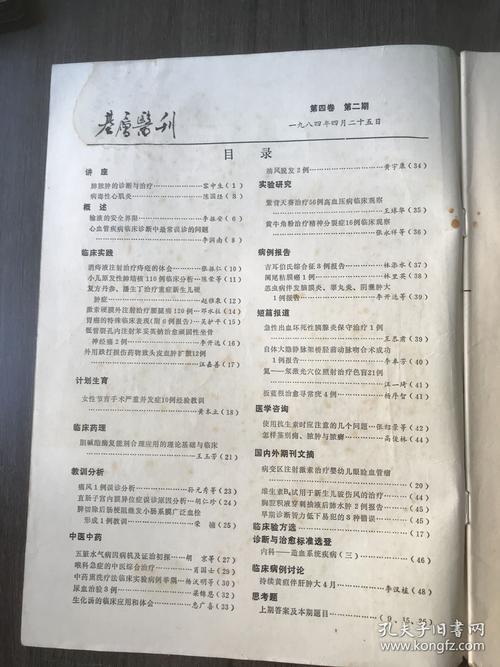 基层醫刊
第四卷 第二期
一九八四年四月二十五日
目 录
讲 座
肺脓肿的诊断与治疗 (1)
病毒性心肌炎 陈国经(8)
概 述
输液的安全界限 李振安(6)
心血管疾病临床诊断中最常误诊的问题
李润南(8)
临床实践
消痔液注射治疗痔疮的体会 张振仁(10)
小儿原发性肺结核110例临床分析 陈家等(11)
肿症 赵维泉(12)
激素硬膜外注射治疗腰腿痛120例 邓水松(14)
胃癌的特殊临床表现(附6例报告) 吴妒平(15)
骶管裂孔内注射苯妥英钠治愈顽固性坐骨
神经痛2例 李开远(16)
外用跌打损伤药物致头皮血肿扩散12例
江嘉善(17)
计划生育
女性节育手术严重并发症10例经验教训
黄本立(18)
临床药理
胆碱酯酶复能剂合理应用的理论基础与临床
王玉芳(21)
教训分析
痛风1例误诊分析 孙元秀等(23)
直肠子宫内膜异位症误诊原因分析 周仁珍(24)
脾切除后肠梗阻继发小肠系膜广泛血栓
形成1例教训 荣 楠(25)
中医中药
五脏水气病因病机及证治初探 胡 京等(27)
喉科急症的中医综合治疗 肖国士(28)
中药熏洗疗法临床实验病例举隅 杨汉明等(30)
尿血治验3例 梁锦恩(32)
生化汤的临床应用和体会 忽广喜(33)
痛风脱发2例 黄宇康(34)
实验研究
紫背天葵治疗56例高血压病临床观察
王球华(35)
黄牛角粉治疗精神分裂症16例临床观察
张水祥等(36)
病例报告
吉耳伯氏综合征3例报告 林添水(37)
阑尾粘膜癌1例 林里英(38)
恶虫病伴发脑膜炎、睾丸炎、阴囊肿大
1例报告 李开远等(39)
短篇报道
急性出血坏死性胰腺炎保守治疗1例
王恭肃(39)
自体大隐静脉架桥胫前动脉吻合术成功
1例报告 李单芳(40)
氦—氖激光穴位照射治疗色盲21例
江一琦(41)
板蓝根治愈寻常疣4例 杨序智(41)
医学咨询
使用抗生素时应注意的几个问题 张绍景等(42)
怎样鉴别疮、脓肿与脓癣 高俊林(44)
国内外期刊文摘
病变区注射激素治疗婴幼儿眼睑血管瘤
(20)
维生素B6试用于新生儿破伤风的治疗 (44)
胸腔积液穿刺抽液后肺水肿2例报告 (45)
早期诊断智力低下易犯的3种错误 (45)
临床验方选 (17)
诊断与治愈标准选登
内科——造血系疾病(三) (46)
临床病例讨论
持续黄疸伴肝肿大4月 李汉植(48)
思考题
上期答案及本期题目 (9、15、26)
孔夫子旧书网
www.kongfz.com